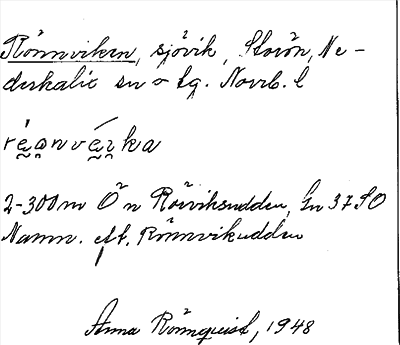 Rönnviken, sjövik, Storön, Ne-
derkalix sn o tg. Norrb. l
réanvéրka
2-300m Ö n Rörviksudden, Gn 37 SO
Namn. eft. Rönnvikudden
Anna Rönnqvist, 1948